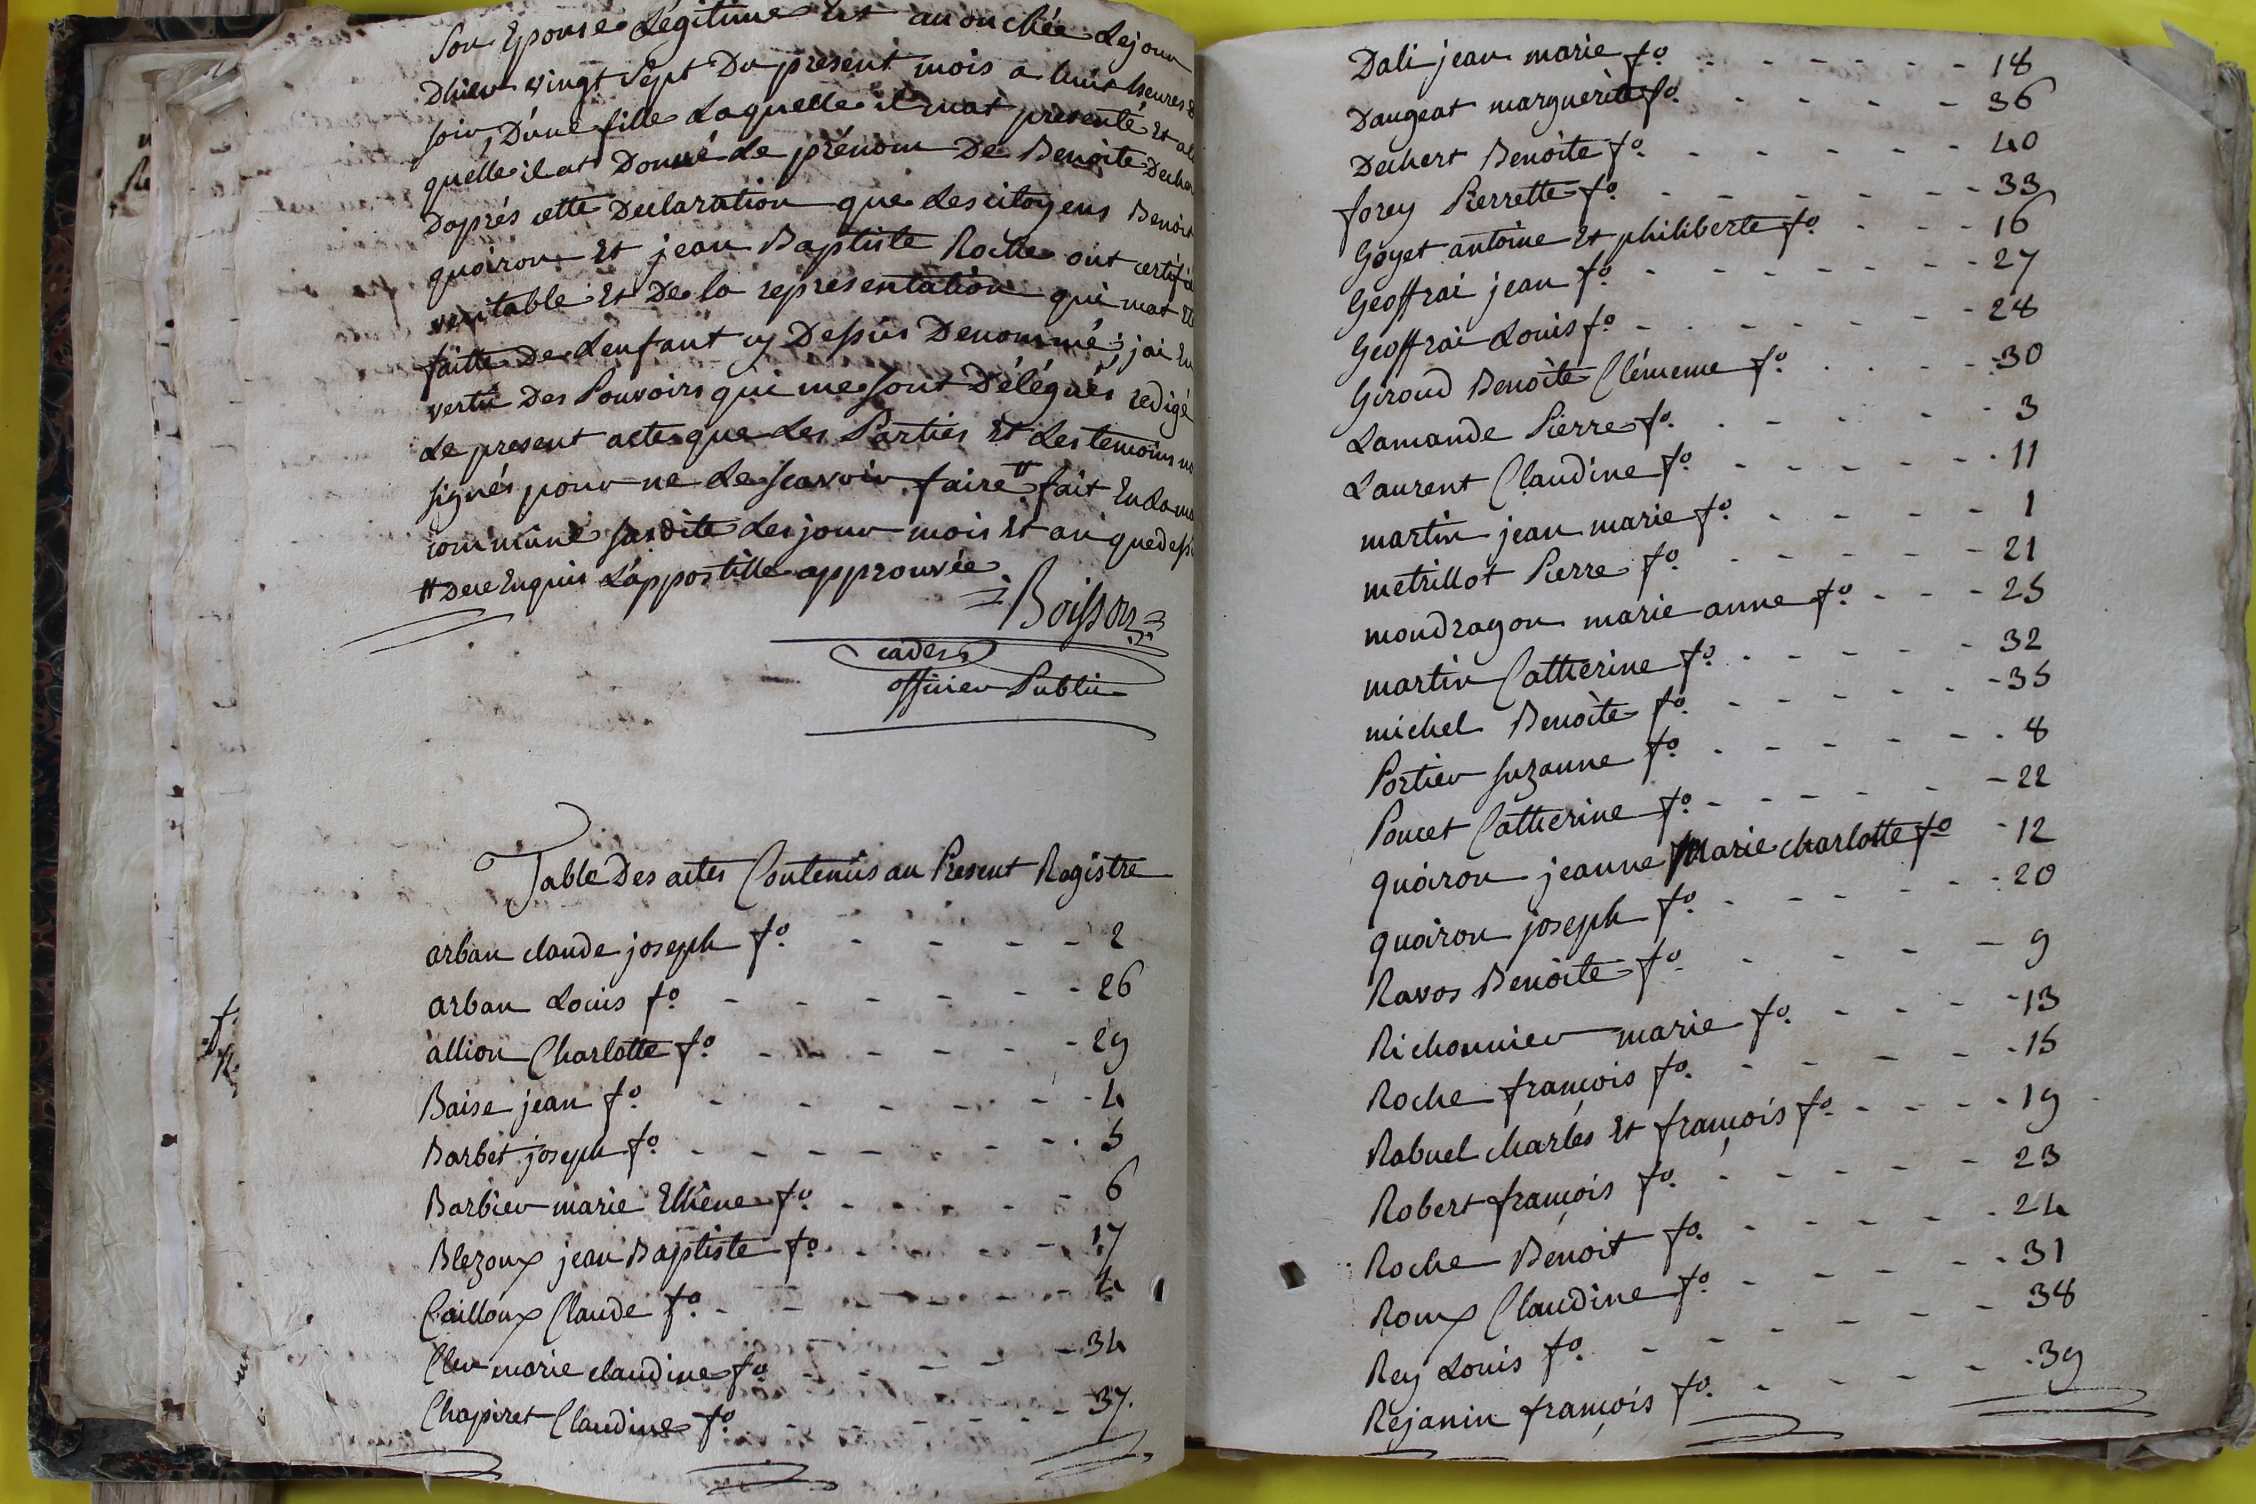 son Epouse Légitime Est accouchée Le jour
Dhier vingt Sept Du présent mois a huit heures
soir, D'une fille Laquelle il mat présenté Et a la
quelle il at Donné Le prénom De Benoite
Daprés cette Declaration que Les citoyens Benoit
quoiron Et jean Baptiste Roche ont certifié
veritable Et De la representation qui mat été
faitte De Lenfant cy Dessus Denommé; jai En
vertu Des Pouvoirs qui me sont Délégués redigé
Le present acte que Les Parties Et Les temoins
signés pour ne Le scavoir faire # fait En La
commune susdite Les jour mois Et an que
# De ce Enquis L'appostille approuvée
Boisson
cadet
officier Public
Table Des actes Contenus au Present Registre
arban claude joseph fo. - - - - 2
arban Louis fo. - - - - - - 26
allion Charlotte fo. - - - - - 29
Baise jean fo. - - - - - - 4
Barbet joseph fo. - - - - - - 5
Barbier marie Ethiene fo. - - - - 6
Blezoux jean Baptiste fo. - - - - 17
Cailloux Claude fo. - - - - - 4
Cler marie claudine fo. - - - 34
Chapiret Claudine fo. - - - - - 37.
Dali jean marie fo. - - - - - 18
Daugeat marguerite fo. - - - - - 36
Dechert Benoite fo. - - - - - - 40
forey Pierrette fo. - - - - - - 33
Goyet antoine Et philiberte fo. - - - 16
Geoffrai jean fo. - - - - - - 27
Geoffrai Louis fo. - - - - - - 28
Giroud Benoite Clémence fo. - - - - 30
Lamande Pierre fo. - - - - - 3
Laurent Claudine fo. - - - - - 11
martin jean marie fo. - - - - - 1
metrillot Pierre fo. - - - - - 21
mondragon marie anne fo. - - - 25
martin Catherine fo. - - - - - 32
michel Benoite fo. - - - - - - 35
Portier suzanne fo. - - - - - - 8
Poncet Catherine fo. - - - - - - 22
quoiron jeanne Marie charlotte fo - 12
quoiron joseph fo. - - - - - - 20
Ravos Benoite fo. - - - - - 9
Richonnier marie fo. - - - - 13
Roche françois fo. - - - - - 15
Rabuel charles Et françois fo. - - - - 19
Robert françois fo. - - - - - 23
Roche Benoit fo. - - - - - - 24
Roux Claudine fo. - - - - - 31
Rey Louis fo. - - - - - - - 38
Rejanin françois fo. - - - - - 39